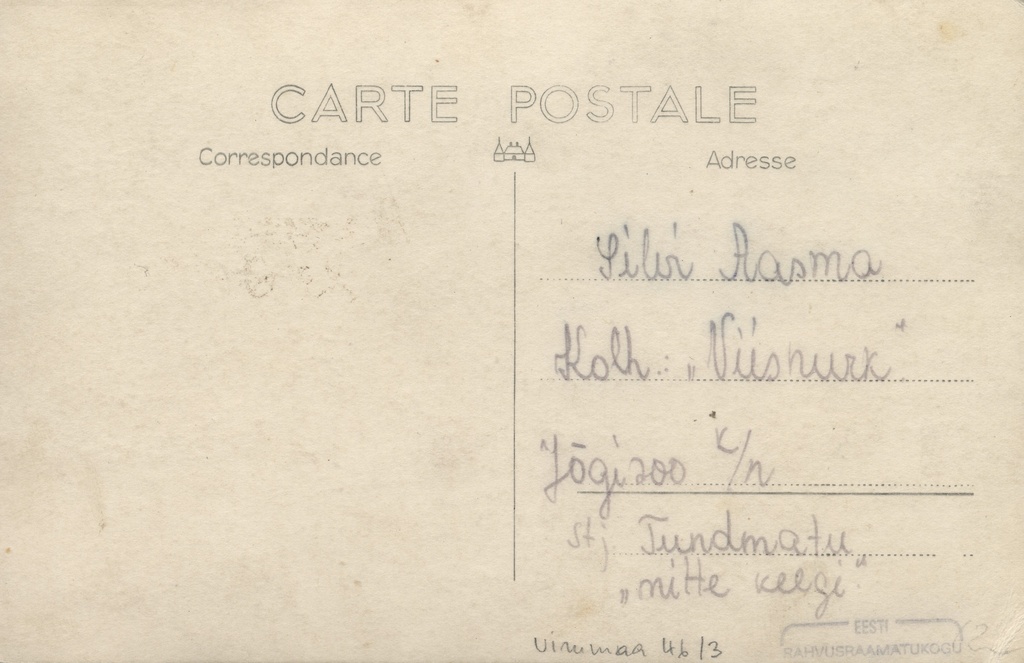 CARTE POSTALE
Correspondance
Adresse
Silvi Aasma
Kolh.: „Viisnurk“
Jõgisoo k/n
stj Tundmatu
„mitte keegi“
Virumaa 46/3
EESTI
RAHVUSRAAMATUKOGU